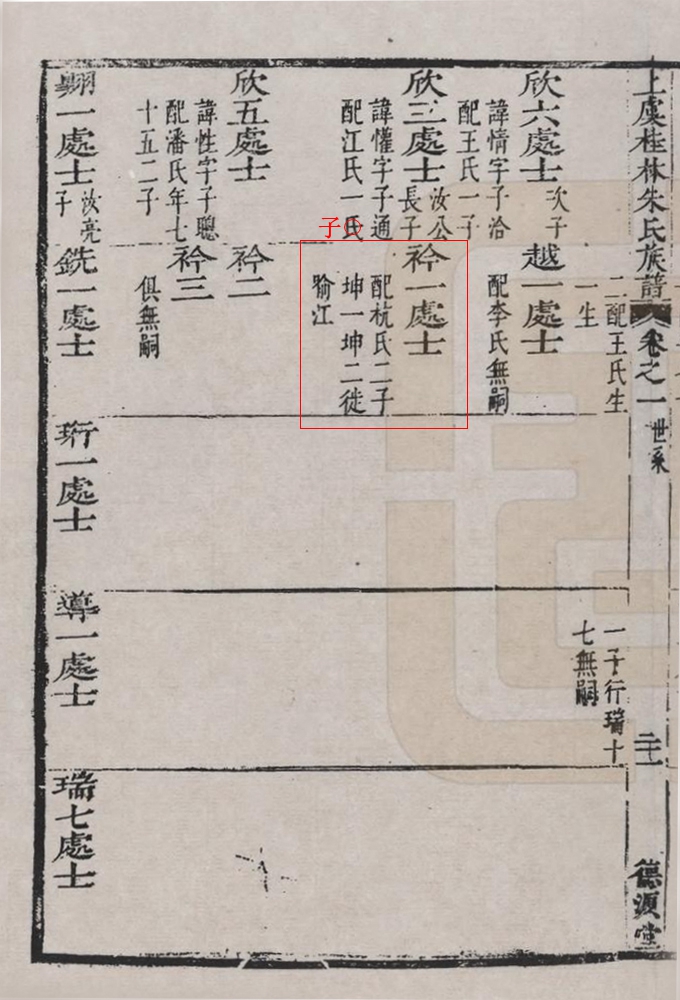 上虞桂林朱氏族譜
卷之一
世系
二十一
德源堂
二配王氏生
一生
一子行瑞十
七無嗣
欣六處士
次子
諱情字子洽
配王氏一子
越一處士
配李氏無嗣
欣三處士
汝公
長子
諱懽字子通
配江氏一氏
子①
衿一處士
配杭氏二子
坤一坤二徙
喻江
欣五處士
諱性字子聰
配潘氏年七
十五二子
衿二
衿三
俱無嗣
一處士
汝亮
子
銑一處士
珩一處士
導一處士
瑞七處士